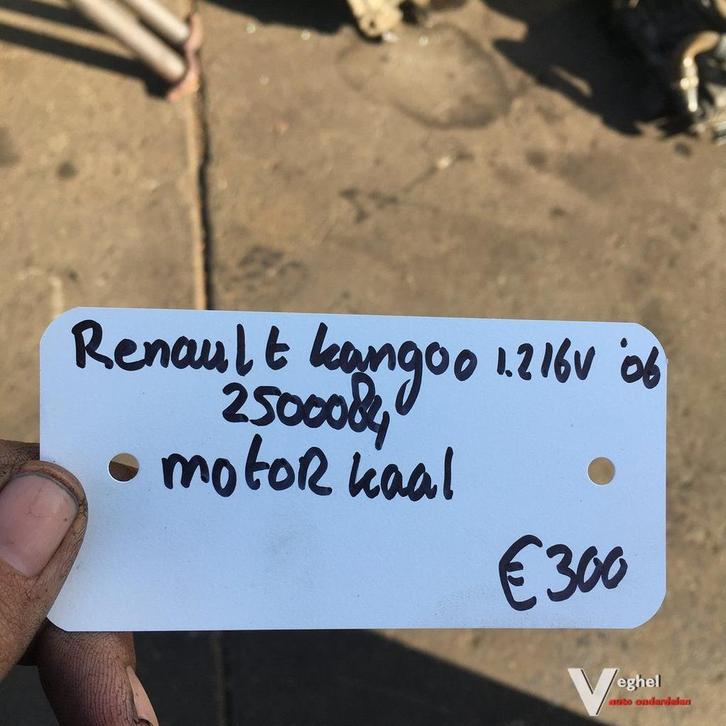 Renault kangoo 1.2 16V '06
2500084
motoR kaal
€300
Veghel
auto onderdelen